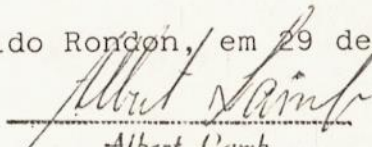 ido Rondon, em 29 de
Albert Lamb
Albert Lamb